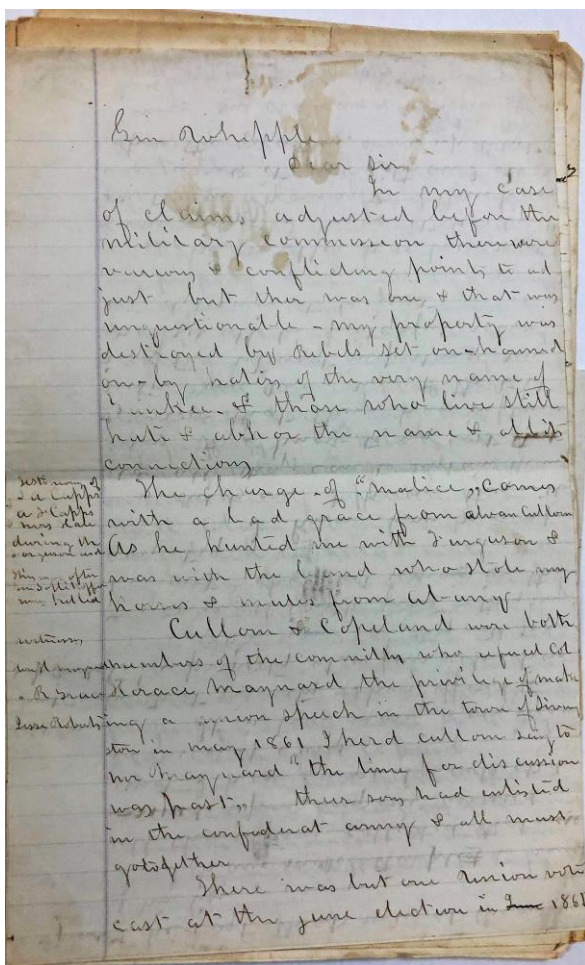 Gen Whipple
Dear Sir
In my case
of claims adjusted before the
military commission there were
various & conflicting points to ad
just but ther was one & that was
unquestionable - my property was
destroyed by Rebels set on - hounded
on - by haters of the very name of
Yankee - & those who live still
hate & abhor the name & all its
connections
The charge of "malice" comes
with a bad grace from alvan Cullom
As he hunted me with Ferguson &
was with the band who stole my
horses & mules from albany
Cullom & Copeland were both
members of the committy who refused Col
Horace Maynard the privilege of mak
ing a union speech in the town of Living
ston in may 1861 I herd cullom say to
mr Maynard "the time for discussion
was past" their sons had enlisted
in the confederat army & all must
go together
There was but one Union vote
cast at the june election in June 1861
testimony of
Capps
a H Capps
during the
witness,
Jesse Roberts